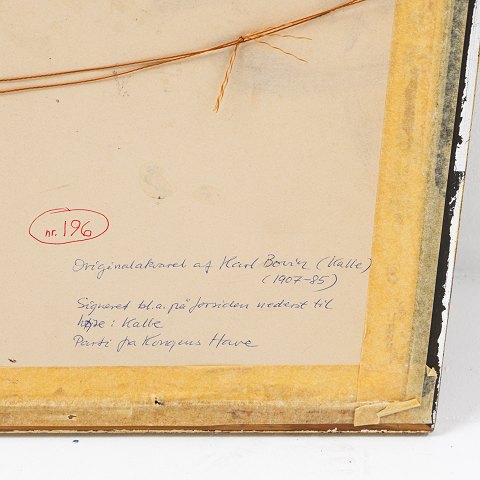 nr. 196
Originalakvarel af Karl Bovin (Kalle)
(1907-85)
Signeret bl.a. på forsiden nederst til
højre : Kalle
Parti fra Kongens Have